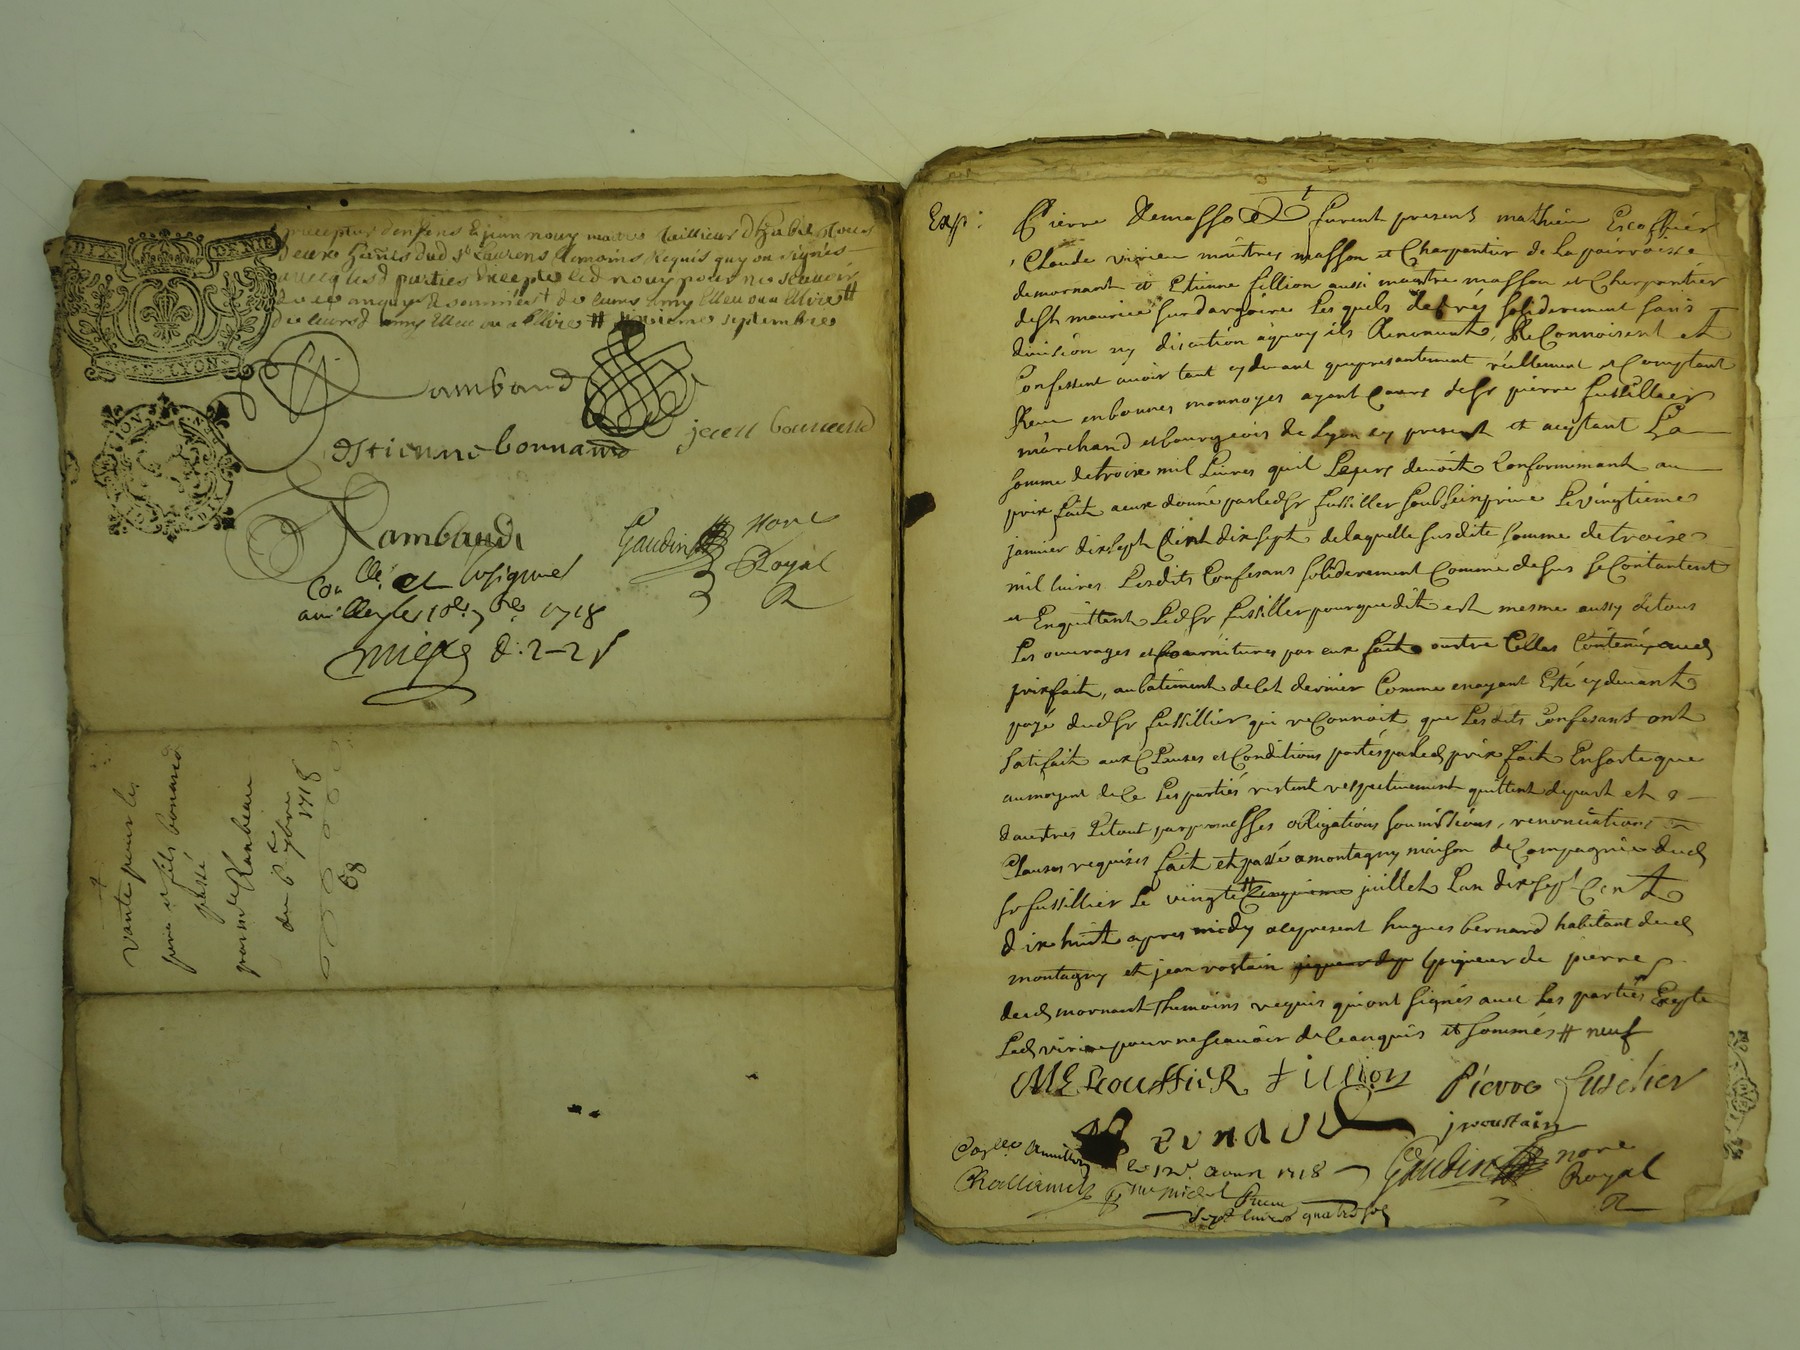 precepteur denfens & jean nouy maitre taillieur dhabit tous
deux habités dud st Laurens temoins requis quy on signés
avecq lesd parties excepte led nouy pour ne scavoir
de ce enquy & sommés
septembre
DIX DENIE
G.D.LYON
Rambaud
Estienne bonnand jean bonnand
Rambaud
Gaudin nore
Royal
Collé et insignué
a le 10e 7bre 1718
d: 2-2s
vante pour les
pere et fils bonnand
passé
par me Ranbeau
du 6e 7bre
1718
68
Exp:
Pierre demasso furent presents mathieu Escoffier
Claude virieu maitres masson et Charpentier de La parroisse
demornant et Etienne fillion aussi maitre masson et Charpentier
de st maurice sur dargoire Lesquels de gré soliderement sans
division ny discution a quoy ils Renoncent, ReConnoisent et
Confessent avoir tant cydevant que presantement réellement et Comptant
Receu en bonnes monnoyes ayant Cours de sr pierre fussillier
marchand et bourgeois de Lyon cy present et aceptant La
somme de troix mil Livres quil Leurs devoit Conformement au
prix fait a eux donné par led sr fussiller soubseinprivé Le vingtieme
janvier dixsept Cent dixsept de laquelle susdite somme de troix
mil livres Lesdits Confesans soliderement Comme desus se Contantent
et Enquittent Led sr fussiller pour que dit est mesme aussy de tous
Les ouvrages et fournitures par eux fait outre Celles Contenu aud
prixfait, au batiment de Cet dernier Comme en ayant Esté cydevant
payé dud sr fussillier qui reConnoit que Lesdits Confesant ont
satifait aux Clauses et Conditions portés par led prix fait En sorte que
au moyent de Ce Les partiés restent respectivement quittent depart et
dautres Le tout par promesses obligations soumissions, renonciations
Clauses requises fait et passé a montagny maison de Compagnie dud
sr fussillier Le vingt cinquieme juillet Lan dix sept Cent
dix huit apres midy a cepresent hugues bernard habitant dud
montagny et jean rostain piqueur de pierre
dud mornant themoins requis qui ont signés avec Les partiés Exepte
Led virieu pour ne scavoir de Ce anquis et sommés # neuf
M Escoffier fillion Pierre fuselier
BERNARD j roustain
le 12e aoust 1718 Gaudin nore
Royal
Receu
sept livres quatre sols